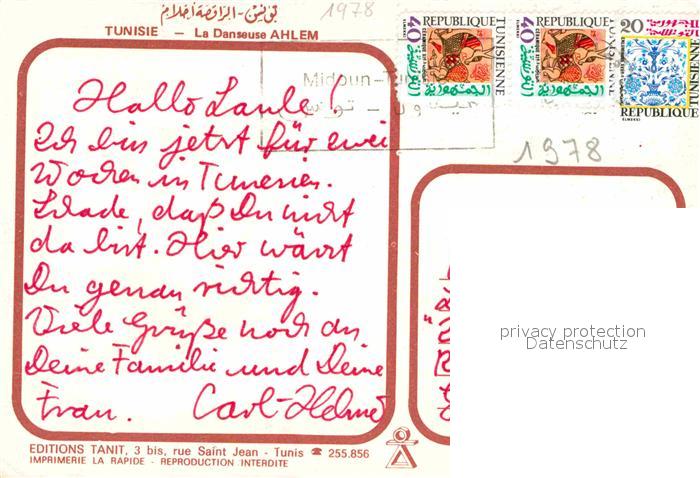 تونس - الراقصة أحلام
1978
TUNISIE — La Danseuse AHLEM
40 REPUBLIQUE TUNISIENNE
40 REPUBLIQUE TUNISIENNE
20 REPUBLIQUE TUNISIENNE
الجمهورية التونسية
الجمهورية التونسية
Midoun - Tu
ميدون - تونس
1978
Hallo Laule!
Ich bin jetzt für zwei
Wochen in Tunesien.
Schade, daß Du nicht
da bist. Hier wärst
Du genau richtig.
Viele Grüße noch an
Deine Familie und Deine
Frau. Carl-Helmut
privacy protection
Datenschutz
EDITIONS TANIT, 3 bis, rue Saint Jean - Tunis ☎ 255.856
IMPRIMERIE LA RAPIDE - REPRODUCTION INTERDITE